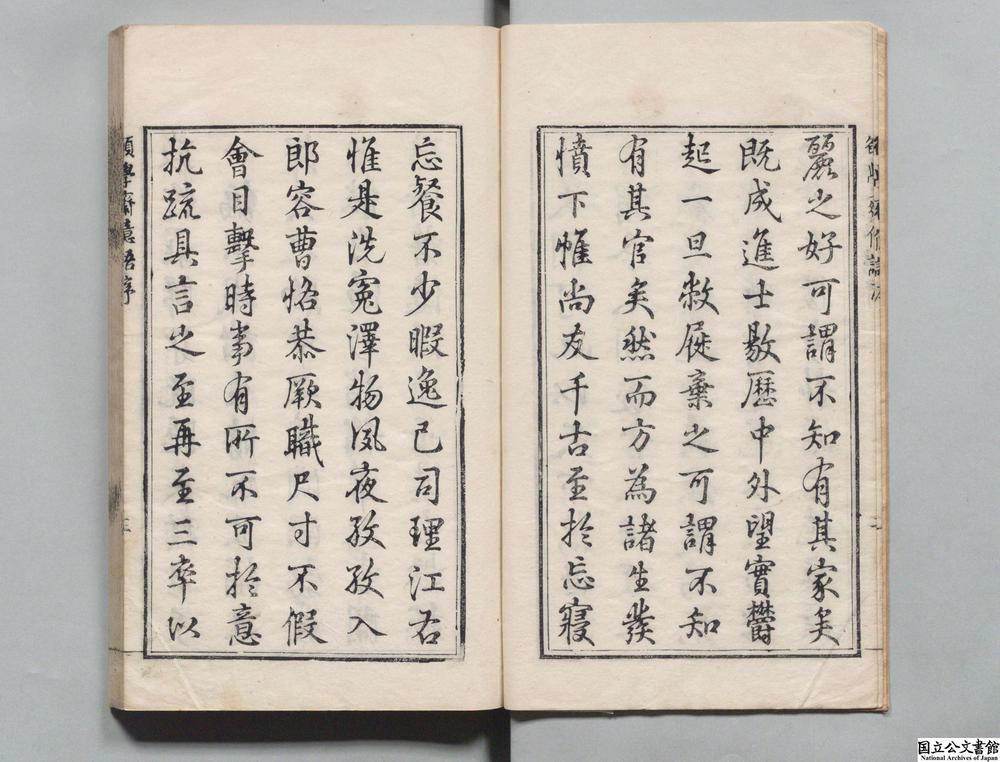 麗之好可謂不知有其家矣
既成進士敭歷中外望實欝
起一旦敝屣棄之可謂不知
有其官矣然而方為諸生發
憤下帷尚友千古至於忘寢
忘餐不少暇逸已司理江右
惟是洗冤澤物夙夜孜孜入
郎容曹恪恭厥職尺寸不假
會目擊時事有所不可於意
抗疏具言之至再至三卒以
序
三
国立公文書館
National Archives of Japan